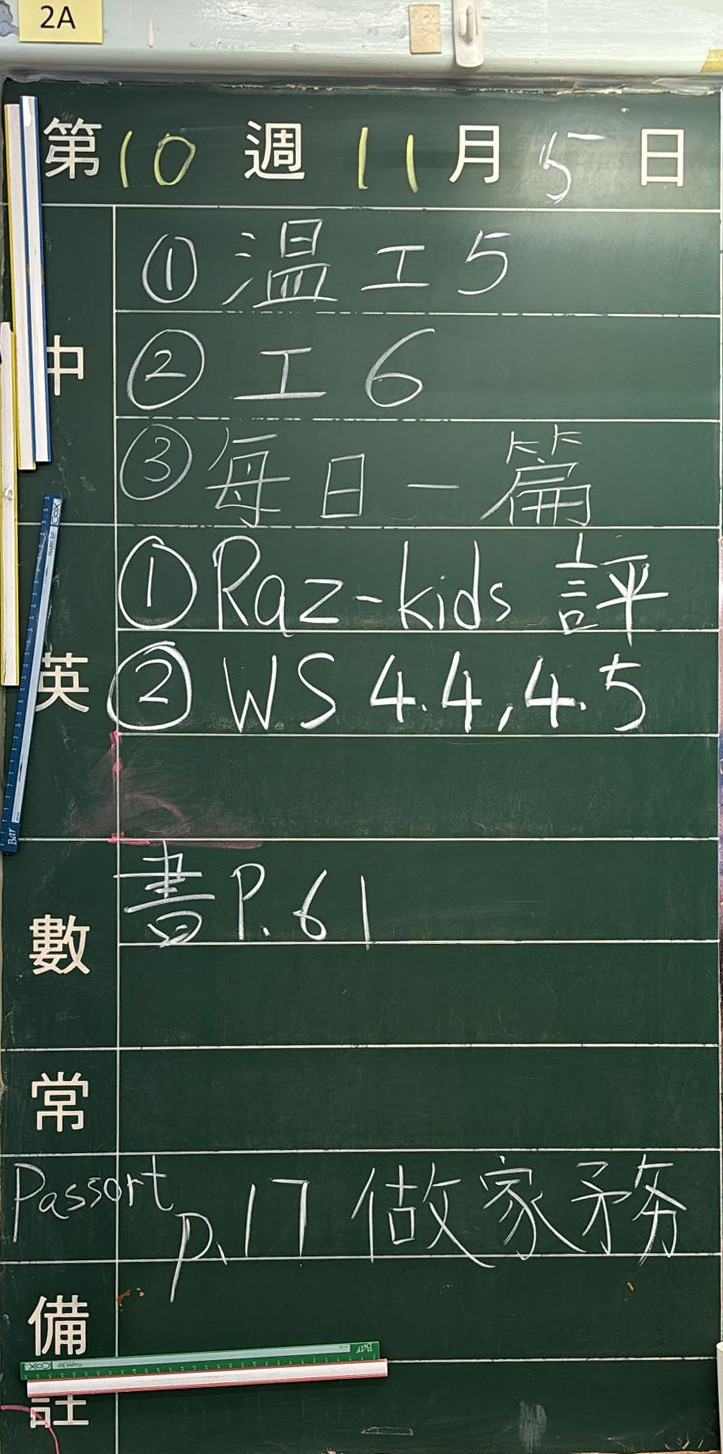 2A
第10週11月5日
中
①温工5
②工6
③每日一篇
英
①Raz-kids 評
②WS 4.4,4.5
數
書P.61
常
Passort p.17 做家務
備註